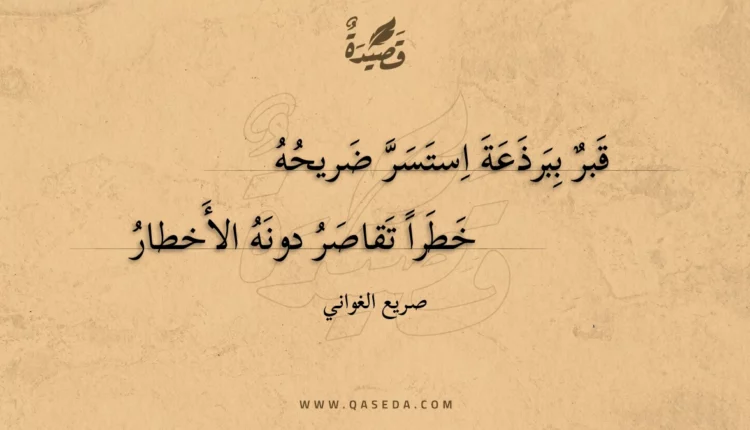 قَصِيدَةٌ
قَبرٌ بِبَرذَعَةَ اِستَسَرَّ ضَريحُهُ
خَطَراً تَقاصَرُ دونَهُ الأَخطارُ
صريع الغواني
WWW.QASEDA.COM